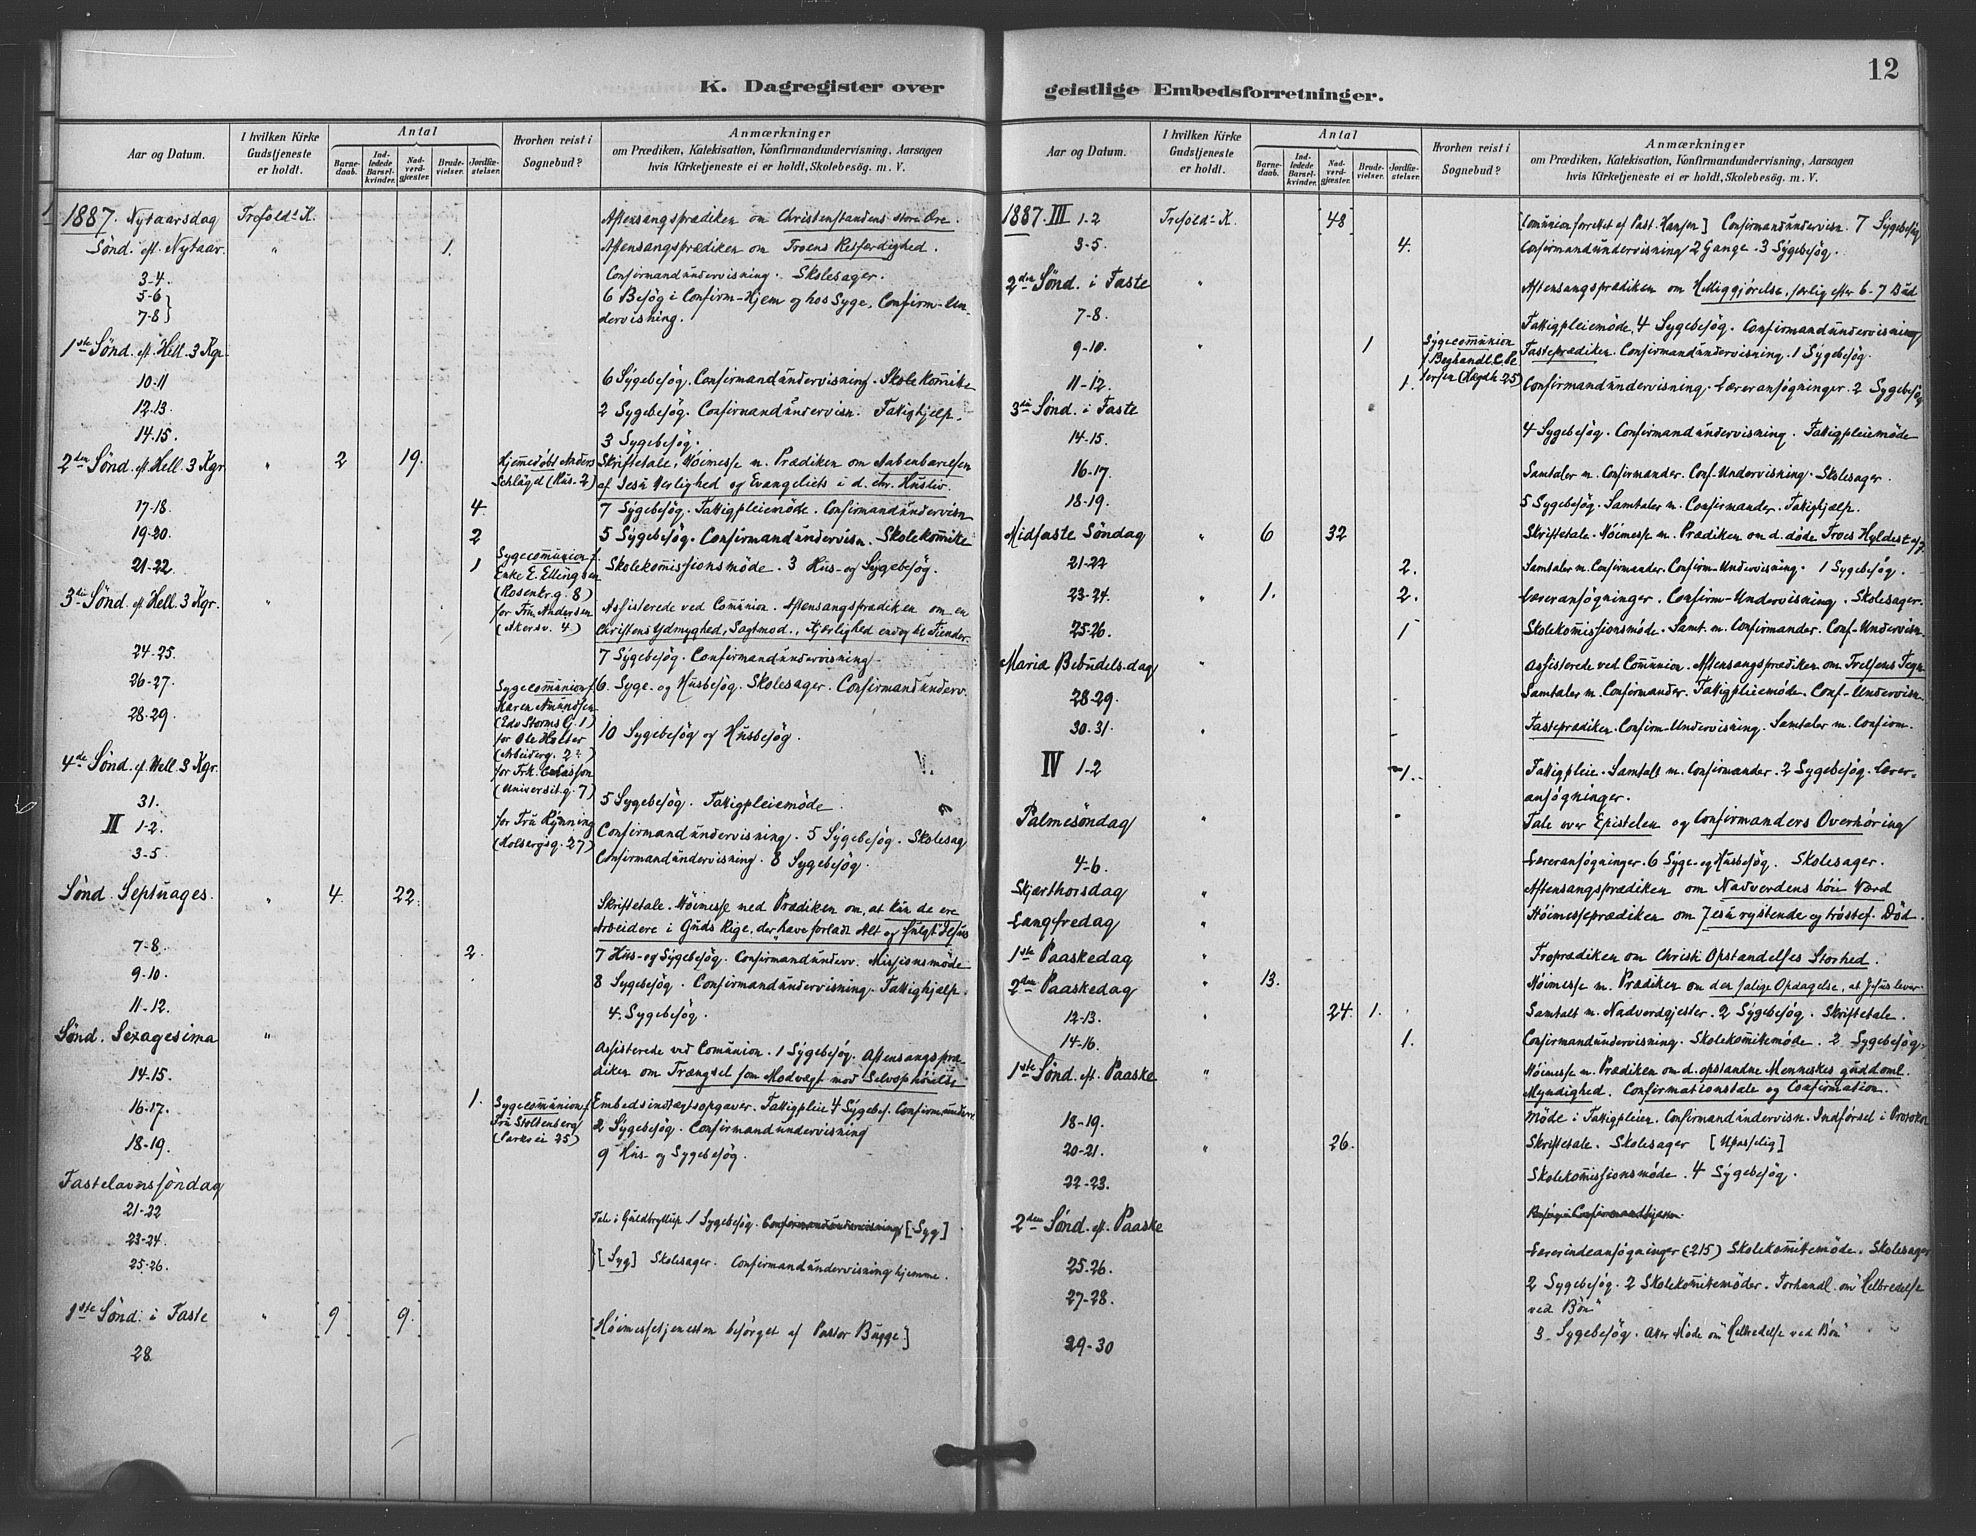 12
K. Dagregister over geistlige Embedsforretninger.
Aar og Datum.
I hvilken Kirke Gudstjeneste er holdt.
Antal
Barnedaab.
Indledede Barselkvinder.
Nadverdgjæster.
Brudevielser.
Jordfæstelser.
Hvorhen reist i Sognebud?
Anmærkninger
om Prædiken, Katekisation, Konfirmandundervisning, Aarsagen
hvis Kirketjeneste ei er holdt, Skolebesög. m. V.
1887. Nytaarsdag Trefold. K. Aftensangsprædiken om Christenstandens store Ære.
Sønd. eft. Nytaar. " 1. Aftensangsprædiken om Troens Retfærdighed.
3-4. Confirmandundervisning. Skolesager.
5-6 6 Besøg i Confirm-Hjem og hos Syge, Confirm-Un-
7-8 dervisning.
1ste Sønd. eft. Hell. 3 Kgr.
10-11 6 Sygebesøg. Confirmandundervisning. Skolekomite
12-13. 2 Sygebesøg. Confirmandundervisn. Fattighjælp.
14-15. 3 Sygebesøg.
2den Sønd. eft. Hell. 3 Kgr. " 2 19. Hjemmedøbt Anders Skriftetale, Høimesse m. Prædiken om Aabenbarelsen
(Hus. 2) af Jesu Herlighed og Evangeliets i d. chr. Husliv.
17-18. 4. 7 Sygebesøg. Fattigpleiemøde. Confirmandundervisn
19-20. 2 5 Sygebesøg. Confirmandundervisn. Skolekomite
21-22. 1 Sygecommunion f. Enke E. Ellingsen (Rosenkr.g. 8) Skolekommissionsmøde. 3 Hus- og Sygebesøg.
3die Sønd. eft. Hell. 3 Kgr. " for Fru Andersen (Akersv. 4) Assisterede ved Communion. Aftensangsprædiken om en
Christens Ydmyghed, Sagtmod., Kjærlighed endog til Fiender.
24-25. 7 Sygebesøg. Confirmandundervisning
26-27. Sygecommunion f. Karen Amundsen 6. Syge- og Husbesøg. Skolesager. Confirmandunderv.
28-29. (Edv Storms G. 1) for Ole Holter (Arbeiderg. 2) 10 Sygebesøg og Husbesøg.
4de Sønd. ef. Hell. 3 Kgr. for Frk. (Universit.g. 7)
31. 5 Sygebesøg. Fattigpleiemøde.
II 1-2. for Fru Rynning (Holbergsg. 27) Confirmandundervisning. 5 Sygebesøg. Skolesag
3-5. Confirmandundervisning. 8 Sygebesøg.
Sønd. Septuages. " 4. 22. Skriftetale. Høimesse med Prædiken om, at kun de ere
Arbeidere i Guds Rige, der "have forladt Alt og fulgt" Jesus
7-8. 2. 7 Hus- og Sygebesøg. Confirmandunderv. Missionsmøde
9-10. 8 Sygebesøg. Confirmandundervisning. Fattighjælp.
11-12. 4. Sygebesøg.
Sønd. Sexagesima " Assisterede ved Communion. 1 Sygebesøg. Aftensangspræ-
14-15. diken om Trængsel som Modvægt mod Selvophøielse
16-17. 1. Sygecommunion f. Fru Stoltenberg (Parkvei 25) Embedsindtægtsopgaver. Fattigpleie 4 Sygebes. Confirmunderv.
18-19. 2 Sygebesøg. Confirmandundervisning
9 Hus- og Sygebesøg.
Fastelavnssøndag
21-22 Tale i Guldbryllup. 1 Sygebesøg. Confirmandundervisning [Syg]
23-24.
25-26. [Syg] Skolesager. Confirmandundervisning hjemme.
1ste Sønd. i Faste " 9 9. [Høimessetjenesten besørget af Pastor Bugge]
28.
Aar og Datum.
I hvilken Kirke Gudstjeneste er holdt.
Antal
Barnedaab.
Indledede Barselkvinder.
Nadverdgjæster.
Brudevielser.
Jordfæstelser.
Hvorhen reist i Sognebud?
Anmærkninger
om Prædiken, Katekisation, Konfirmandundervisning, Aarsagen
hvis Kirketjeneste ei er holdt, Skolebesög. m. V.
1887. III 1-2 Trefold. K. 48 [Comunion forrettet af Past. Hansen] Confirmandundervisn. 7 Sygebesøg
3-5. 4. Confirmandundervisning 2 Gange. 3 Sygebesøg.
2den Sønd. i Faste " Aftensangsprædiken om Helliggjørelse, særlig efter 6-7 Bud
7-8. Fattigpleiemøde. 4 Sygebesøg. Confirmandundervisning
9-10. " 1 Sygecommunion f (Hægdh. 25) Fasteprædiken. Confirmandundervisning. 1 Sygebesøg.
11-12. 1. Confirmandundervisning. Læreransøgninger. 2 Sygebesøg
3die Sønd. i Faste
14-15. 4 Sygebesøg. Confirmandundervisning. Fattigpleiemøde
16-17. Samtaler m. Confirmander. Conf-Undervisning. Skolesager.
18-19. 5 Sygebesøg. Samtaler m. Confirmander. Fattighjælp.
Midfaste Søndag " 6 32 Skriftetale. Høimesse m. Prædiken om d. døde Troes
21-22 2. Samtaler m. Confirmander. Confirm-Undervisning. 1 Sygebesøg.
23-24. " 1. 2. Læreransøgninger. Confirm-Undervisning. Skolesager.
25-26. 1 Skolekommissionsmøde. Samt. m. Confirmander. Conf-Undervisn.
Maria Bebudels.dag " Assisterede ved Communion. Aftensangsprædiken om Frelsens Tegn
28-29. Samtaler m. Confirmander. Fattigpleiemøde. Conf-Undervisn.
30-31. " Fasteprædiken. Confirm-Undervisning. Samtaler m. Confirm.
IV 1-2 1. Fattigpleie. Samtalt m. Confirmander. 2 Sygebesøg. Lærer-
ansøgninger.
Palmesøndag " Tale over Epistelen og Confirmanders Overhøring
4-6. Læreransøgninger. 6 Syge- og Husbesøg. Skolesager.
Skjærthorsdag " Aftensangsprædiken om Nadverdens høie Værd
Langfredag " Høimesseprædiken om Jesu rystende og trøstef. Død.
1ste Paaskedag " Froprædiken om Christi Opstandelses Storhed.
2den Paaskedag " 13. Høimesse m. Prædiken om den salige Opdagelse, at Jesus lever.
12-13. " 24. 1. Samtalt m. Nadverdgjester. 2 Sygebesøg. Skriftetale.
14-16. 1. Confirmandundervisning. Skolekomitemøde. 2 Sygebesøg.
1ste Sønd. eft. Paaske " Høimesse m. Prædiken om d. opstandne Menneskes guddoml.
Myndighed. Confirmationstale og Confirmation.
18-19. Møde i Fattigpleien. Confirmandundervisn. Indførsel i
20-21. " 26. Skriftetale. Skolesager [Upasselig]
22-23. Skolekommissionsmøde. 4 Sygebesøg.
2den Sønd. eft. Paaske
25-26. Lærerindeansøgninger (215) Skolekomitemøde. Skolesager
27-28. 2 Sygebesøg. 2 Skolekomitemøder. Forhandl. om "Helbredelse
ved Bøn"
29-30 3 Sygebesøg. Møde om "Helbredelse ved Bøn"